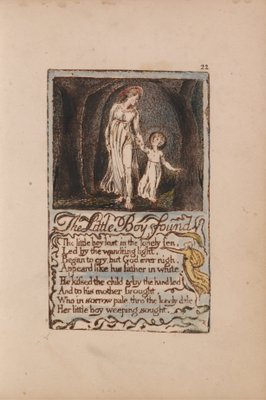 22
The Little Boy found
The little boy lost in the lonely fen,
Led by the wand'ring light,
Began to cry, but God ever nigh,
Appeard like his father in white.
He kissed the child & by the hand led
And to his mother brought,
Who in sorrow pale, thro' the lonely dale
Her little boy weeping sought.